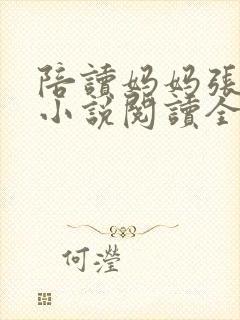 陪讀媽媽張
小說閱讀全
何瀅